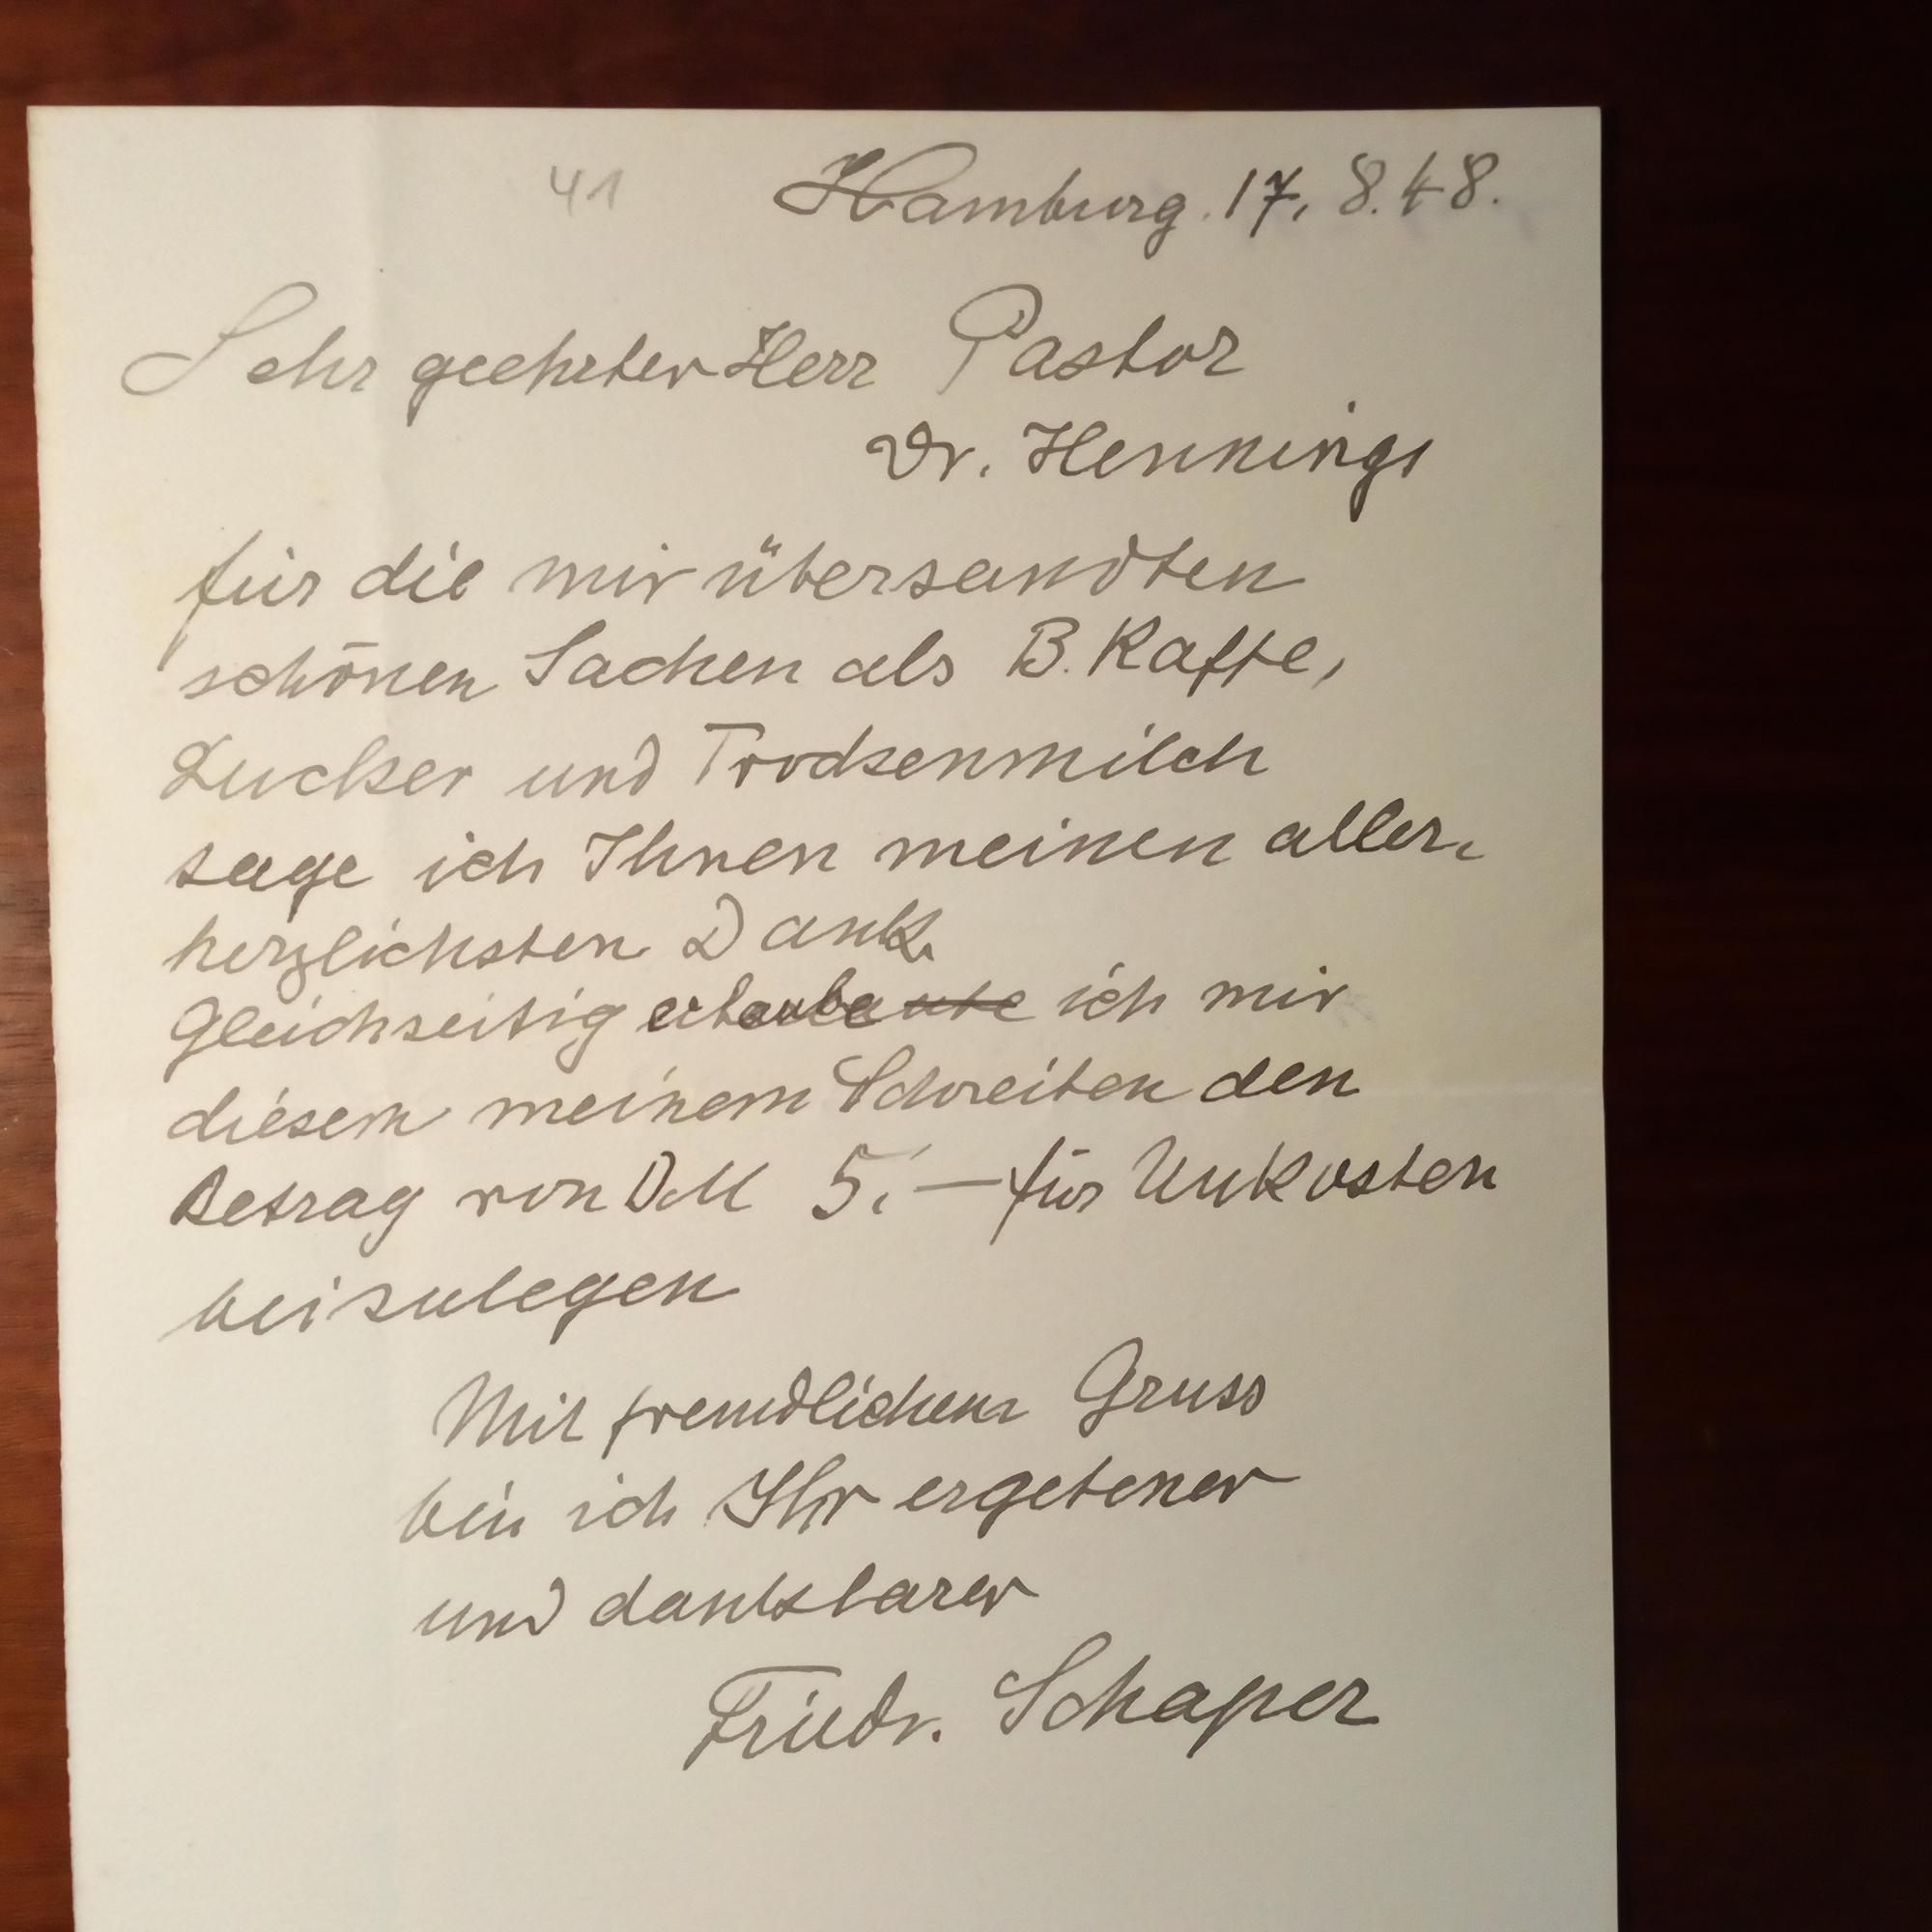 41 Hamburg. 17. 8. 48.
Sehr geehrter Herr Pastor
Dr. Hennings
für die mir übersandten
schönen Sachen als B. Kaffe,
Zucker und Trocksenmilch
sage ich Ihnen meinen aller-
herzlichsten Dank.
Gleichzeitig erlaube ich mir
diesem meinem Schreiben den
Betrag von DM 5.— für Unkosten
beizulegen
Mit freundlichem Gruss
bin ich Ihr ergebener
und dankbarer
Friedr. Schaper